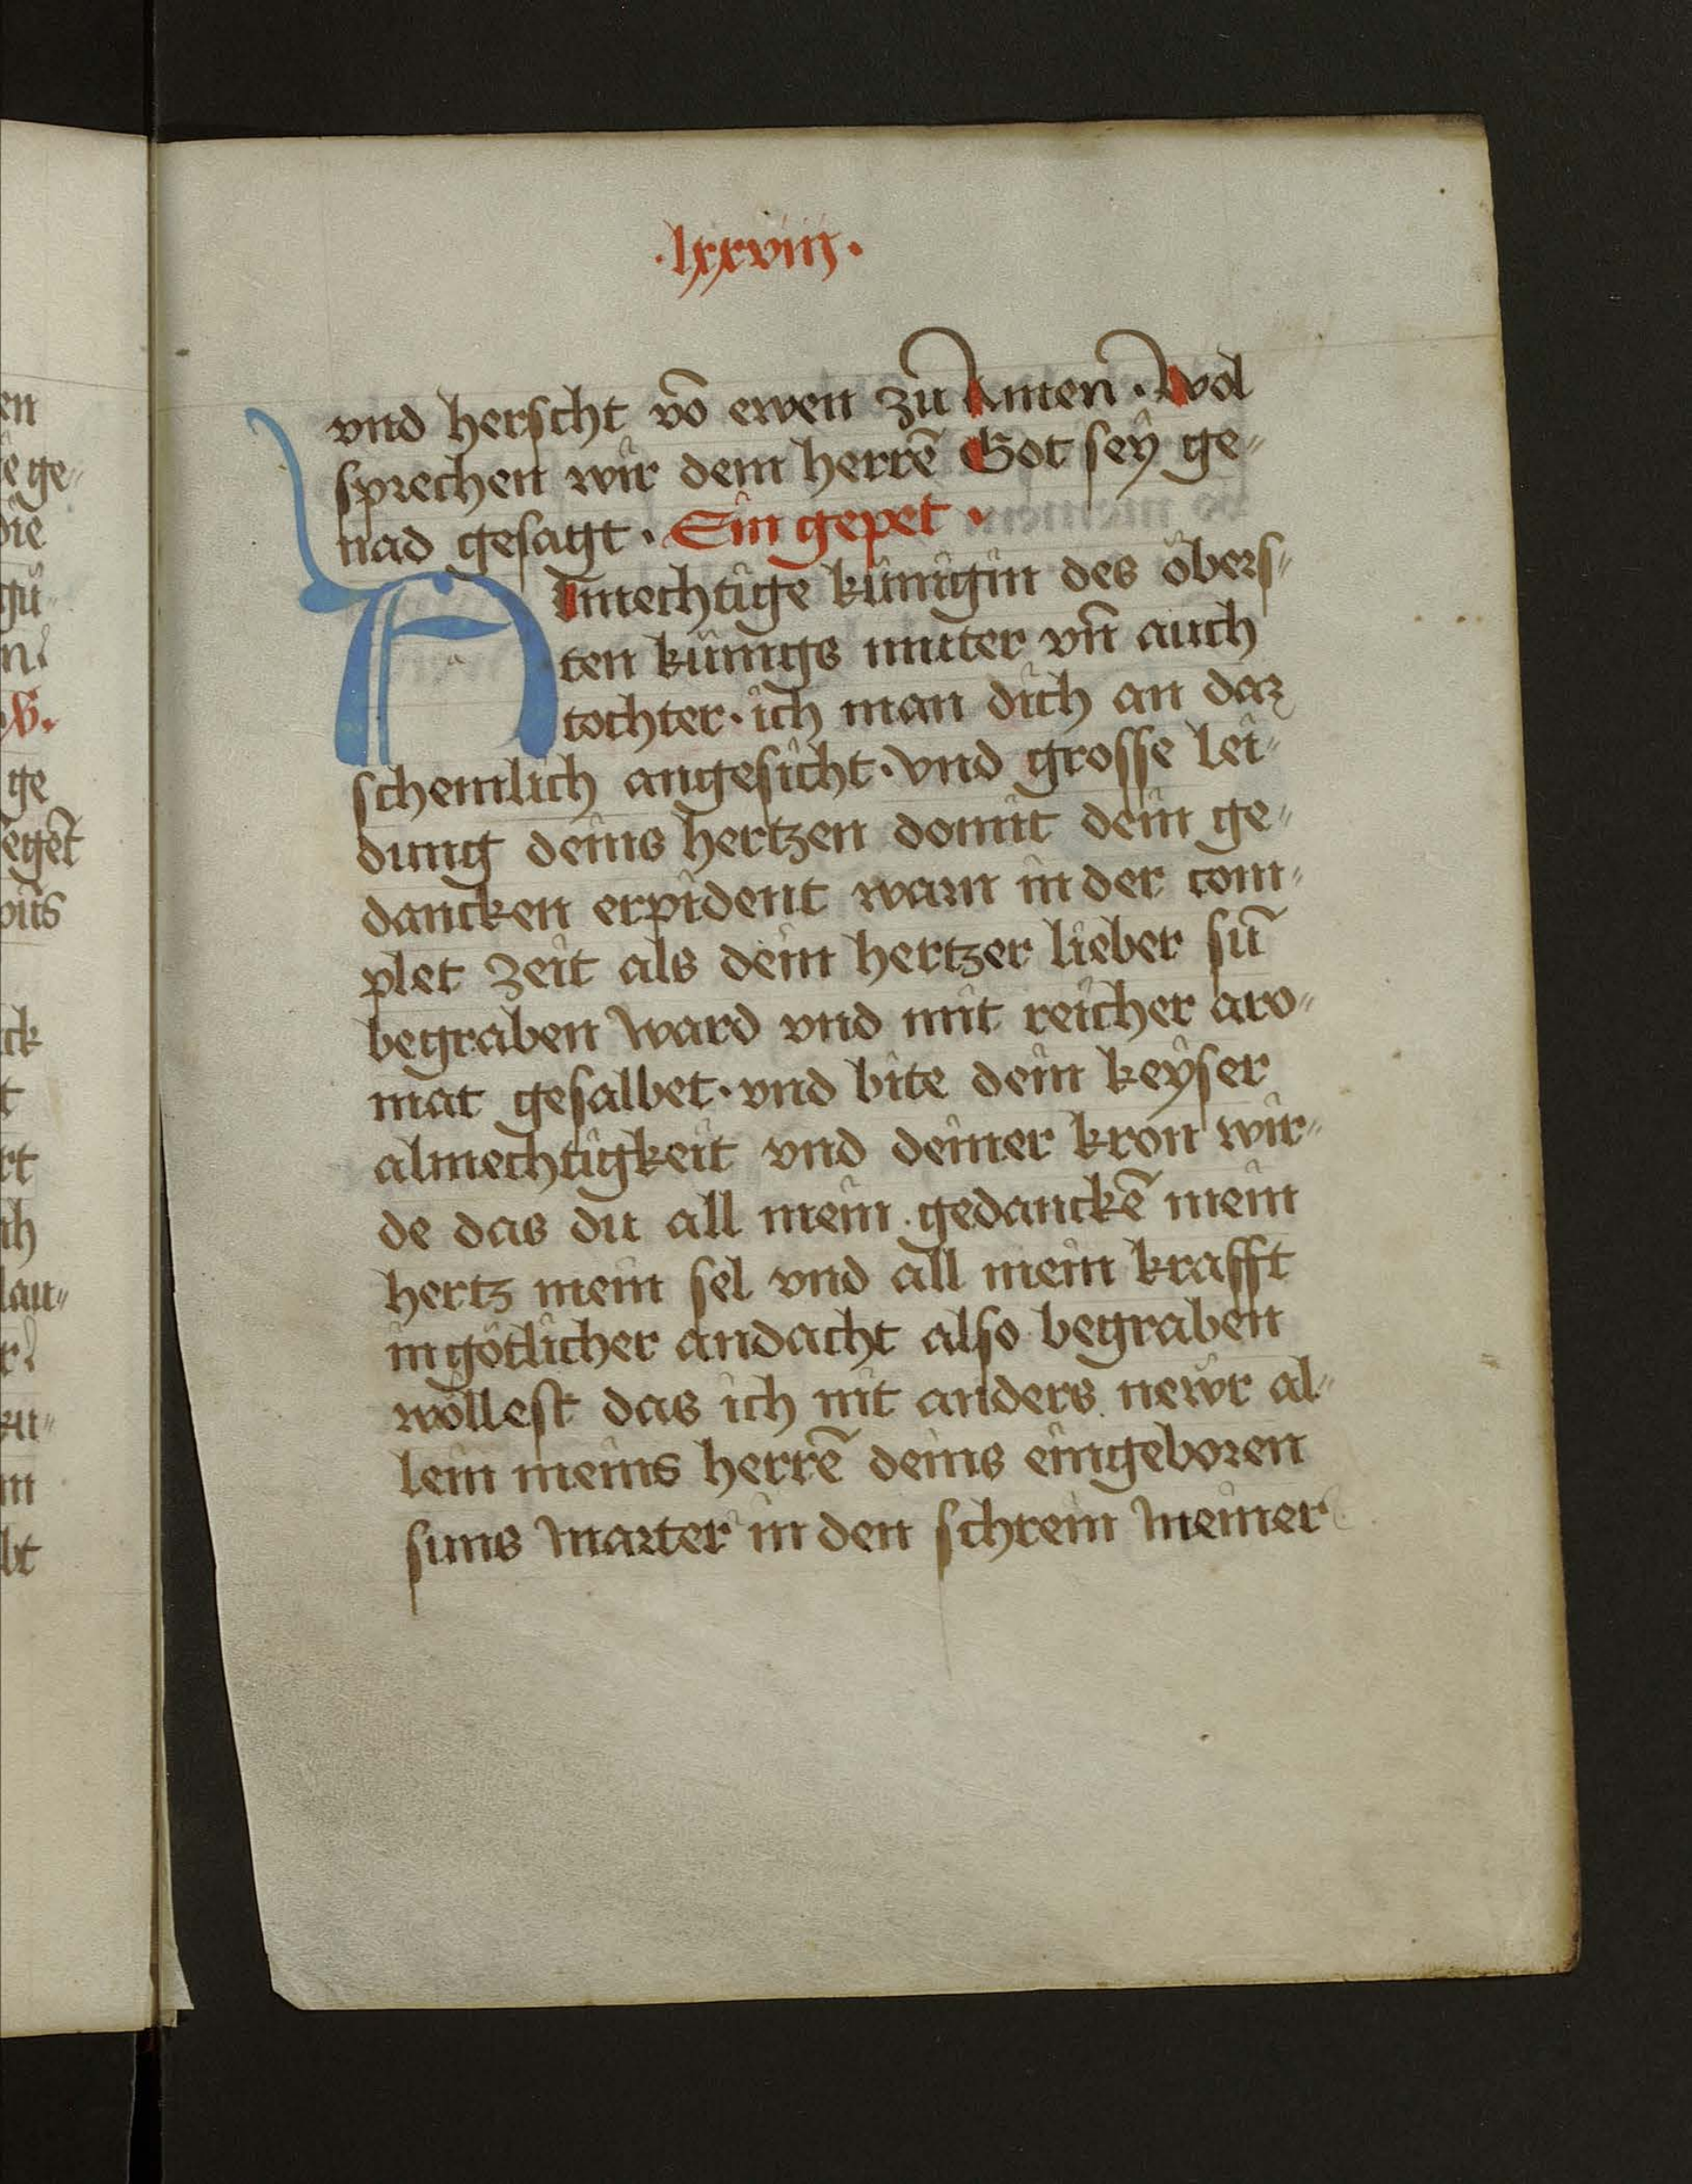 ·lxxviiij·
vnd herscht võ ewen zů Amen̄. Wol
sprechen wir dem herrē Got seÿ ge„
nad gesagt. Ein gepet.
Almechtige künigin des öbers„
ten künigs muter vn̄ auch
tochter. ich man dich an daz
schemlich angesicht. vnd grosse lei„
dung deins hertzen domit dein ge„
dancken erpident warn in der com„
plet zeit als dein hertzer lieber sūn
begraben ward vnd mit reicher aro„
mat gesalbet. vnd bite dein keÿser
almechtigkeit vnd deiner kron wir„
de das du all mein gedanckē mein
hertz mein sel vnd all mein krafft
in götlicher andacht also begraben
wöllest das ich nit anders newr al„
lein meins herrē deins eingeboren
suns marter in den schrein meiner
en
ge„
die
gü„
ge
ck
t
rt
ch
lau„
m
bt